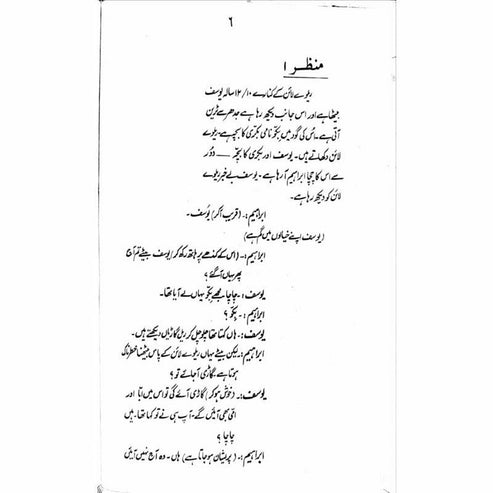 ۶
منظر ۱
ریلوے لائن کے کنارے ۱۰/۱۲ سالہ یوسف
بیٹھا ہے اور اس جانب دیکھ رہا ہے جدھر سے ٹرین
آتی ہے۔ اس کی گود میں بکّو نامی بکری کا بچہ ہے۔ ریلوے
لائن دکھاتے ہیں۔ یوسف اور بکری کا بچہ ــــ دُور
سے اس کا چچا ابراہیم آ رہا ہے۔ یوسف بے خبر ریلوے
لائن کو دیکھ رہا ہے۔
ابراہیم:۔ (قریب آکر) یوسف۔
(یوسف اپنے خیالوں میں گم ہے)
ابراہیم:۔ (اس کے کندھے پر ہاتھ رکھ کر) یوسف بیٹے تم آج
پھر یہاں آ گئے ؟
یوسف:۔ چاچا۔ مجھے بِکّو یہاں لے آیا تھا۔
ابراہیم:۔ بِکّو ؟
یوسف:۔ ہاں کہتا تھا چلو چل کر ریل گاڑیاں دیکھتے ہیں۔
ابراہیم:۔ لیکن بیٹے یہاں ریلوے لائن کے پاس بیٹھنا خطرناک
ہوتا ہے۔ گاڑی آجائے تو ؟
یوسف:۔ (خوش ہو کر) گاڑی آئے گی تو اس میں ابّا اور
امّی بھی آئیں گے۔ آپ ہی نے تو کہا تھا۔ ہیں
چاچا ؟
ابراہیم:۔ (پریشان ہو جاتا ہے) ہاں۔ وہ آج نہیں آئیں